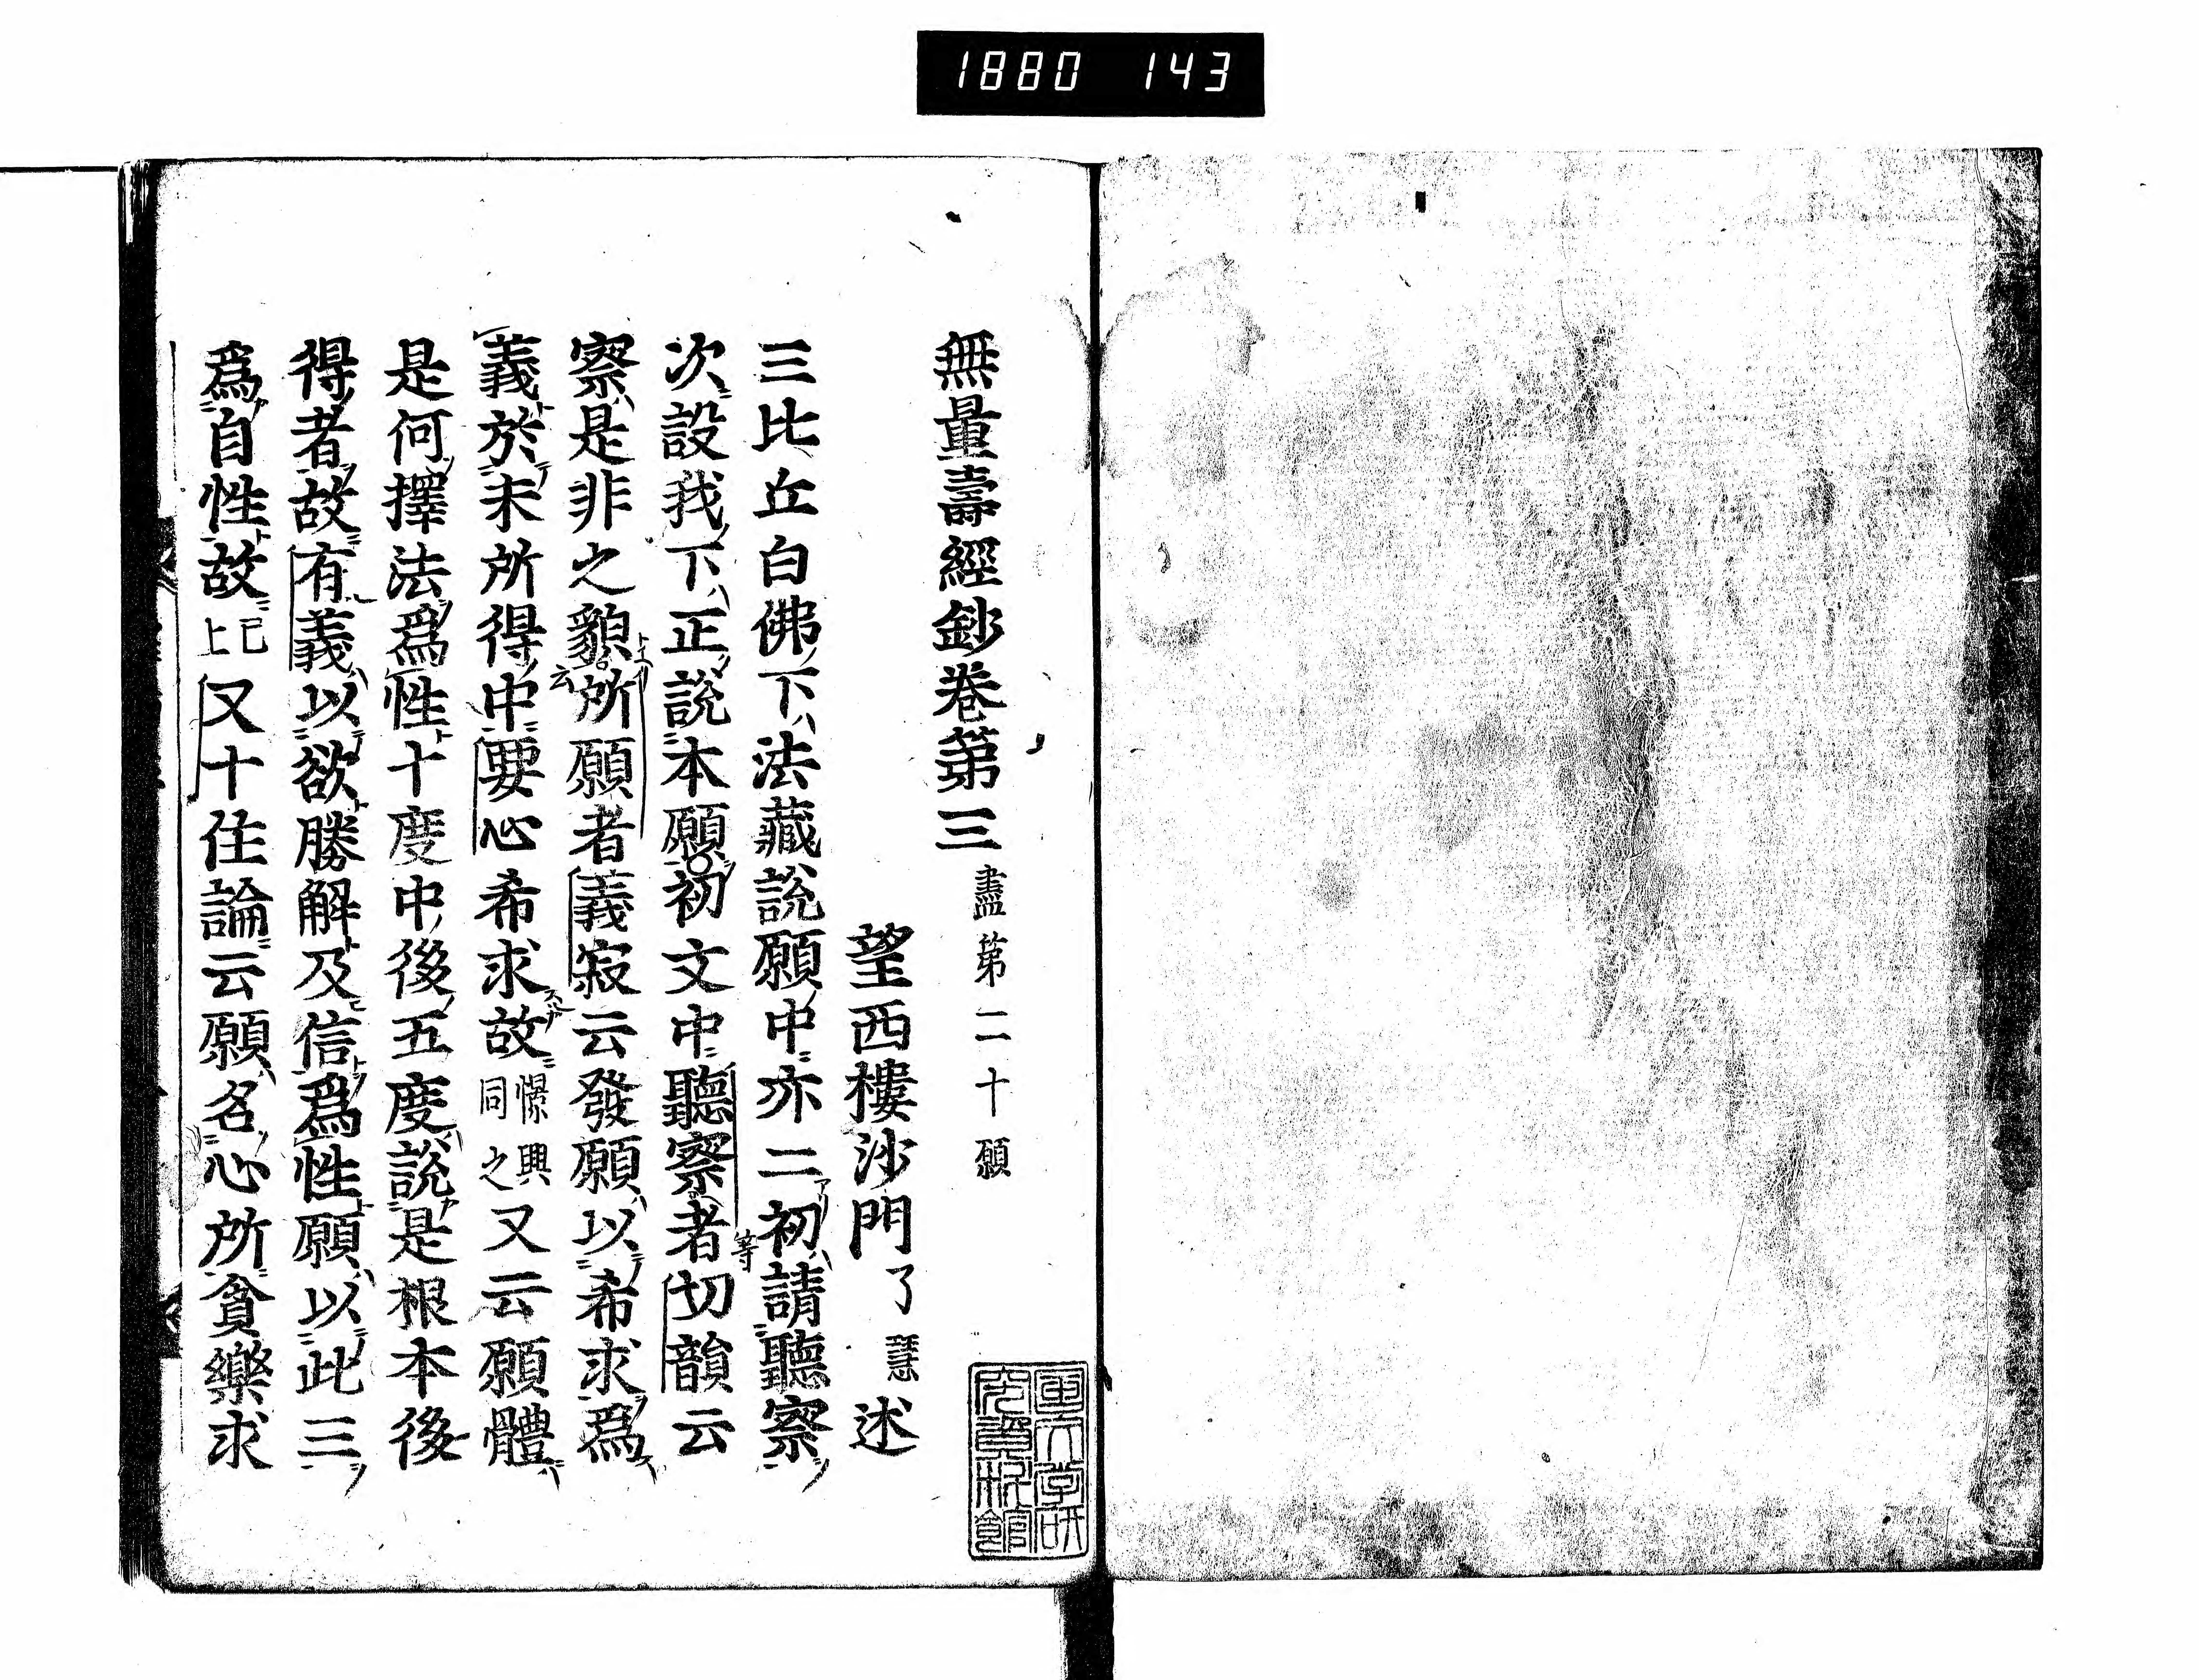 1880 143
無量壽經鈔卷第三 盡第二十願
望西樓沙門了慧述
三比丘白佛下法藏說願中亦二初請聽察
次設我下正說本願初文中聽察者切韻云
察是非之貌所願者義寂云發願以希求爲
義於未所得中要心希求故憬興同之又云願體
是何擇法爲性十度中後五度說是根本後
得者故有義以欲勝解及信爲性願以此三
爲自性故已上比又十住論云願名心所貪樂求